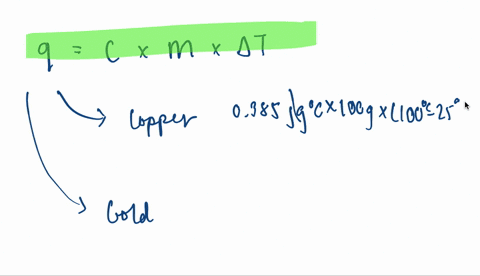 q = C x m x ΔT
Copper 0.385 J/g°C x 100g x (100°C-25°
Gold